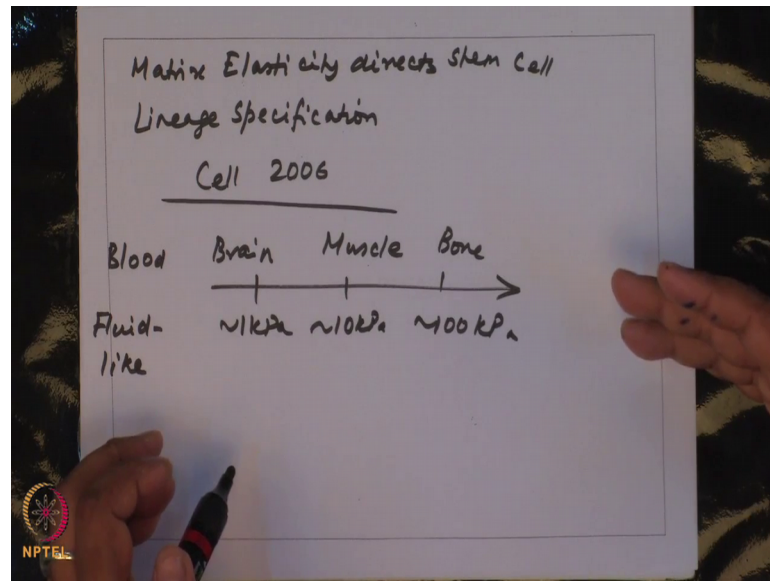 Matrix Elasticity directs Stem Cell
Lineage Specification
Cell 2006
Blood Brain Muscle Bone
Fluid-like ~1kPa ~10kPa ~100kPa
NPTEL